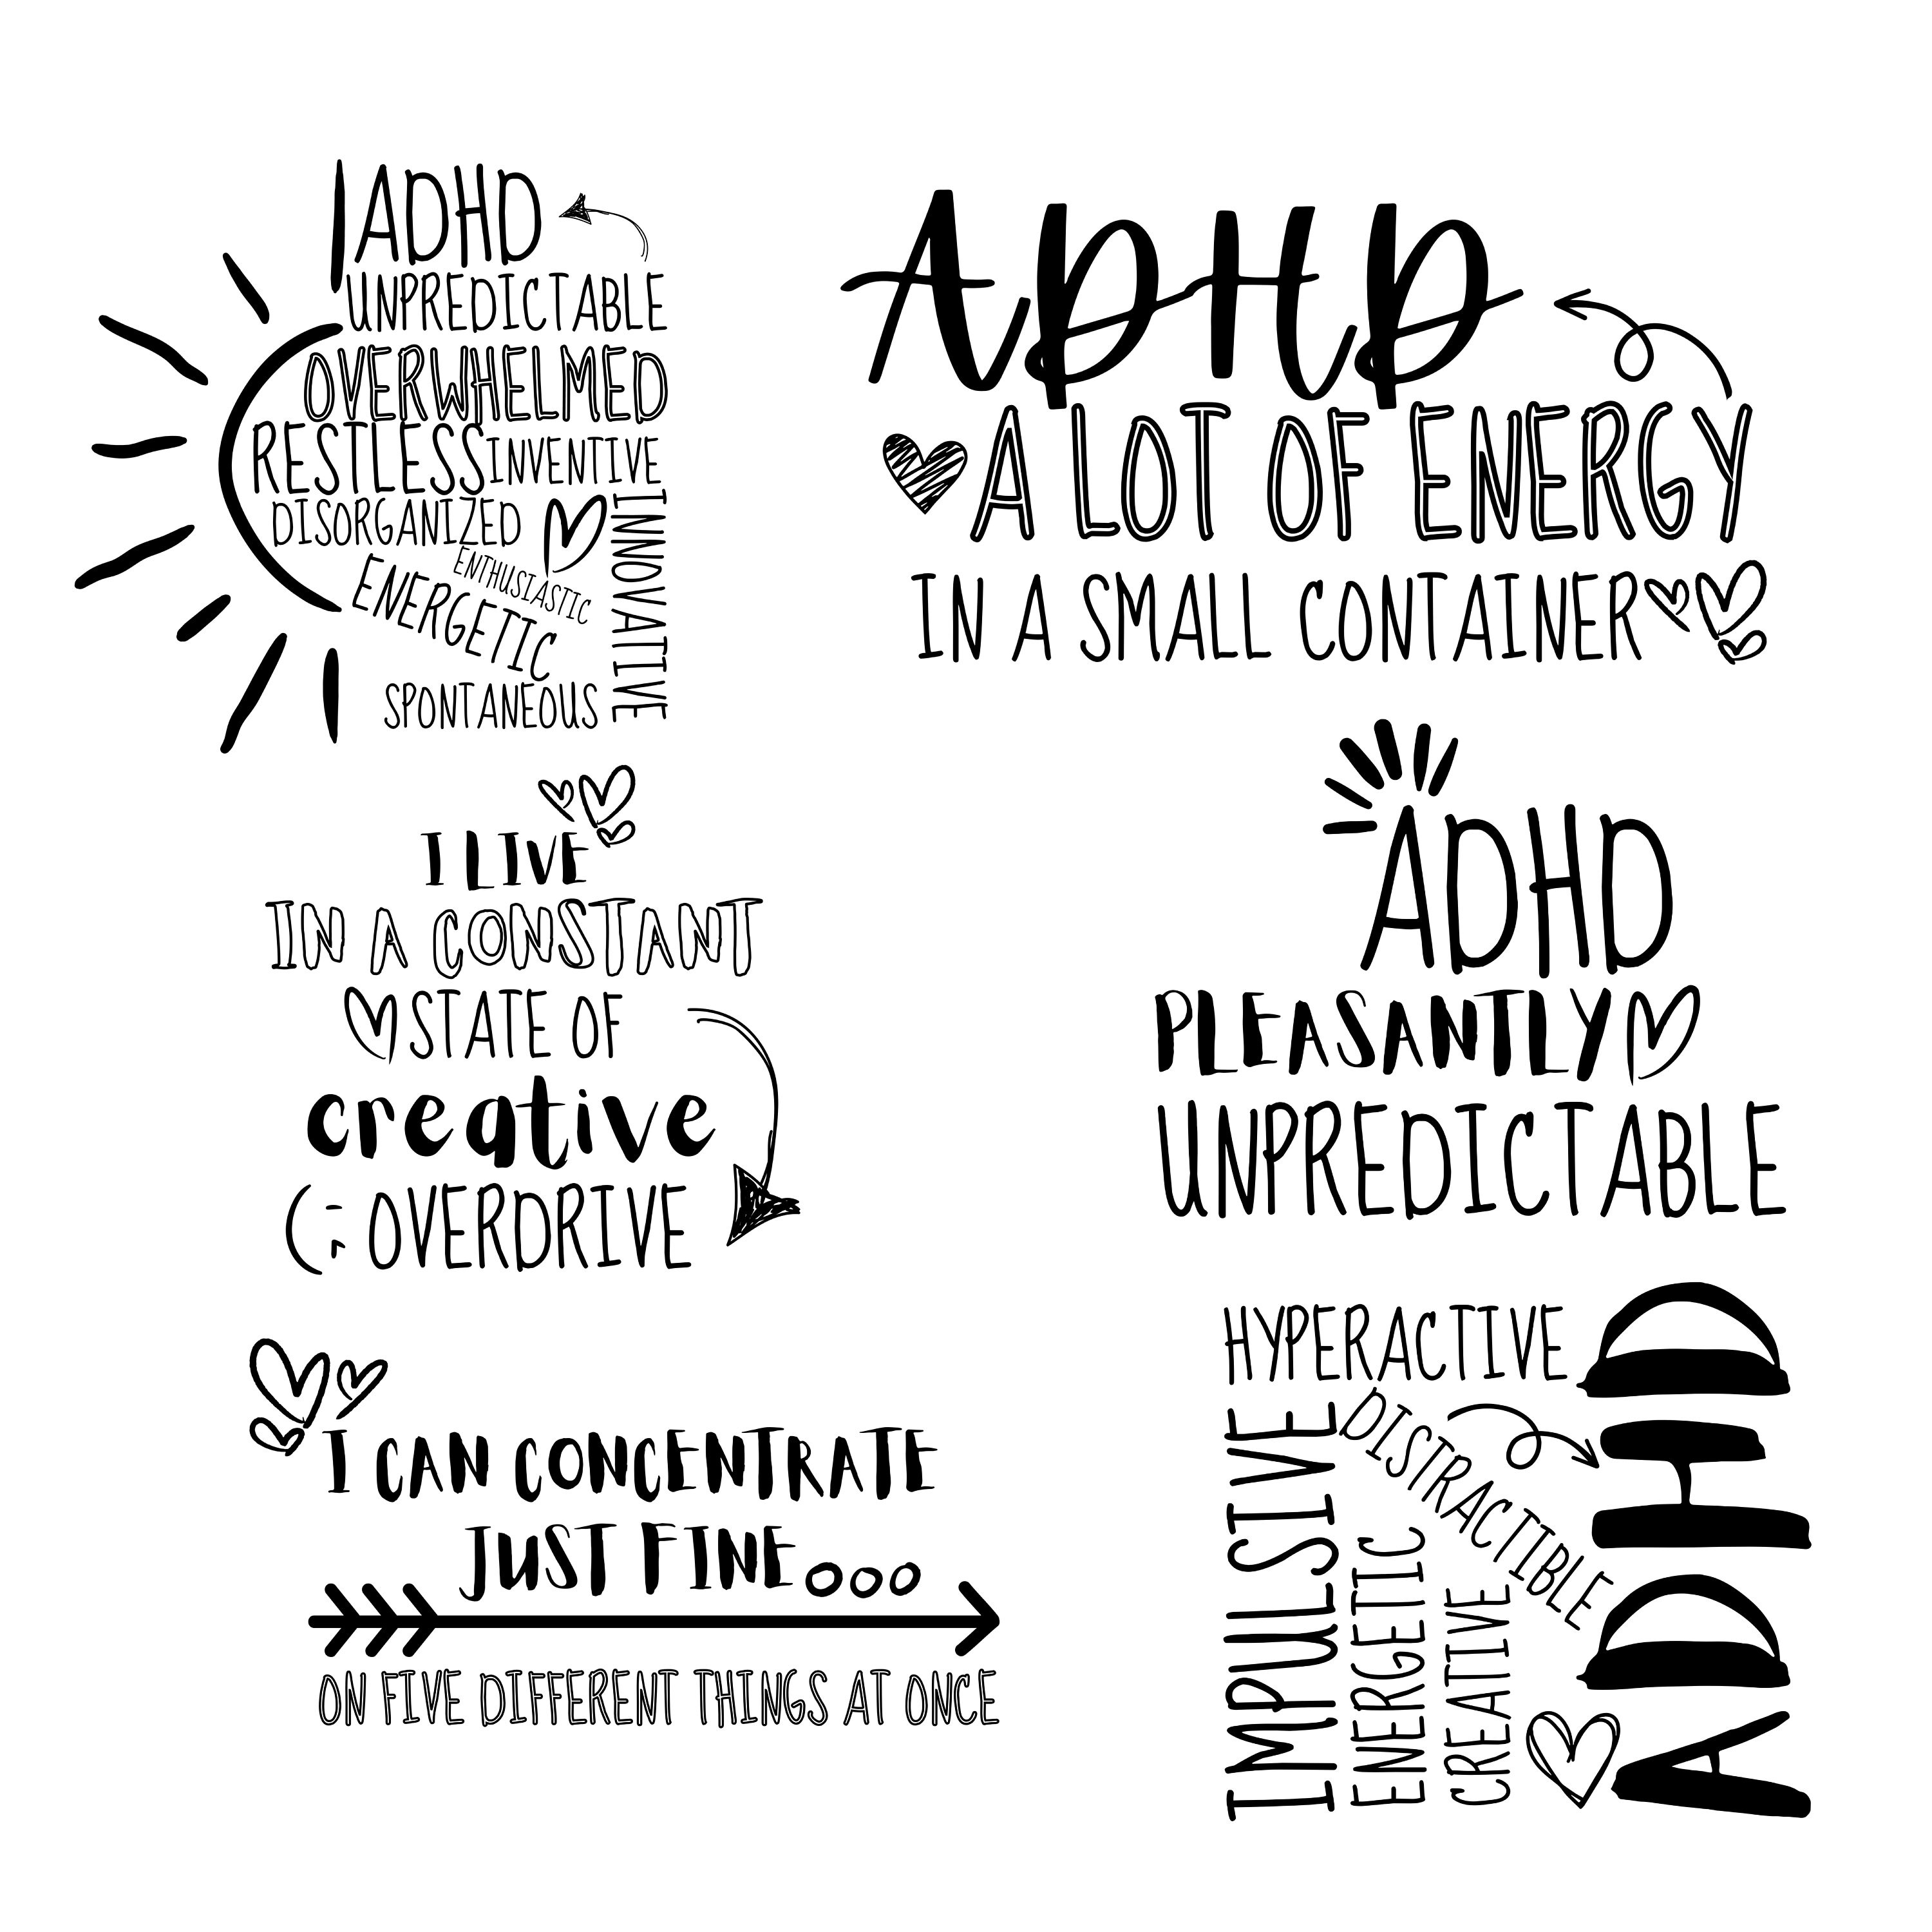 ADHD
UNPREDICTABLE
OVERWHELMED
RESTLESS INVENTIVE
DISORGANIZED
ENTHUSIASTIC
ENERGETIC
INNOVATIVE
SPONTANEOUS
ADHD
A LOT OF ENERGY
IN A SMALL CONTAINER
I LIVE
IN A CONSTANT
STATE OF
creative
(-; OVERDRIVE
ADHD
PLEASANTLY
UNPREDICTABLE
I CAN CONCENTRATE
JUST FINE...
ON FIVE DIFFERENT THINGS AT ONCE
HYPERACTIVE
IMPULSIVE
DISTRACTIBLE
ENERGETIC
CREATIVE
ADHD